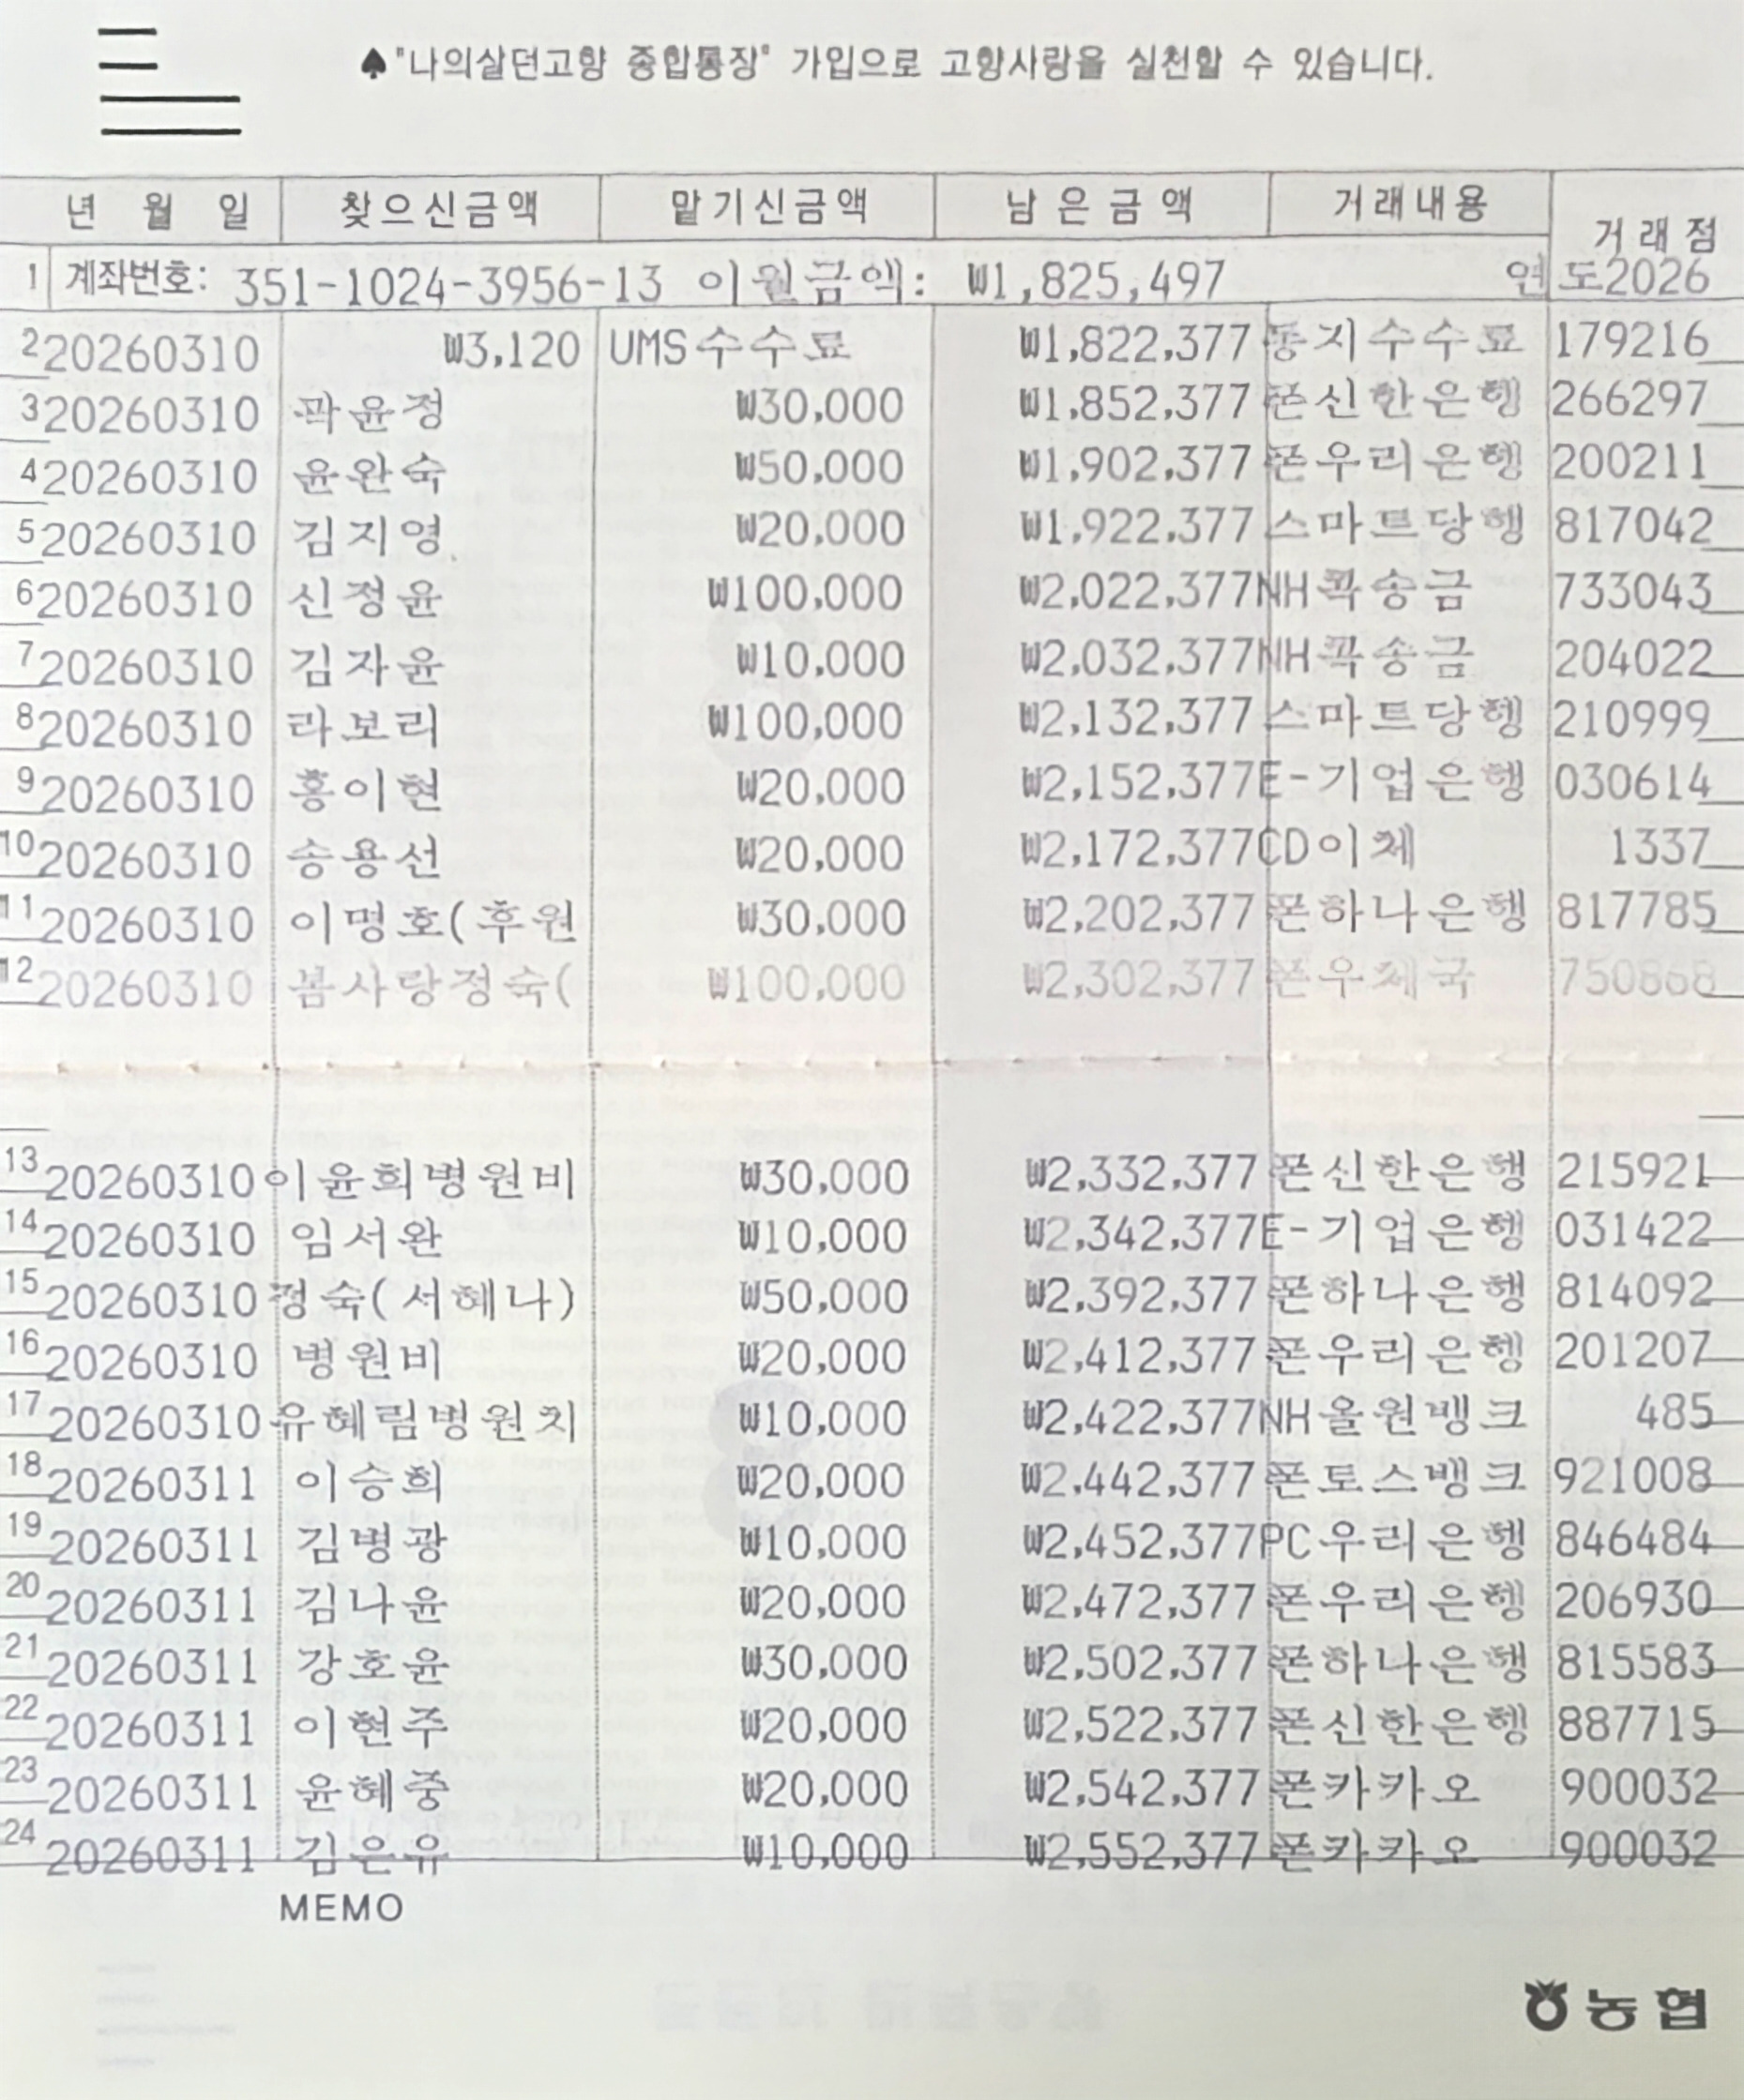 ♠"나의살던고향 종합통장" 가입으로 고향사랑을 실천할 수 있습니다.
년 월 일 찾으신금액 맡기신금액 남은금액 거래내용 거래점
1 계좌번호: 351-1024-3956-13 이월금액: ₩1,825,497 연도2026
2 20260310 ₩3,120 UMS수수료 ₩1,822,377 통지수수료 179216
3 20260310 곽윤정 ₩30,000 ₩1,852,377 폰신한은행 266297
4 20260310 윤완숙 ₩50,000 ₩1,902,377 폰우리은행 200211
5 20260310 김지영 ₩20,000 ₩1,922,377 스마트당행 817042
6 20260310 신정윤 ₩100,000 ₩2,022,377 NH콕송금 733043
7 20260310 김자윤 ₩10,000 ₩2,032,377 NH콕송금 204022
8 20260310 라보리 ₩100,000 ₩2,132,377 스마트당행 210999
9 20260310 홍이현 ₩20,000 ₩2,152,377 E-기업은행 030614
10 20260310 송용선 ₩20,000 ₩2,172,377 CD이체 1337
11 20260310 이명호(후원 ₩30,000 ₩2,202,377 폰하나은행 817785
12 20260310 봄사랑정숙( ₩100,000 ₩2,302,377 폰우체국 750868
13 20260310 이윤희병원비 ₩30,000 ₩2,332,377 폰신한은행 215921
14 20260310 임서완 ₩10,000 ₩2,342,377 E-기업은행 031422
15 20260310 정숙(서혜나) ₩50,000 ₩2,392,377 폰하나은행 814092
16 20260310 병원비 ₩20,000 ₩2,412,377 폰우리은행 201207
17 20260310 유혜림병원치 ₩10,000 ₩2,422,377 NH올원뱅크 485
18 20260311 이승희 ₩20,000 ₩2,442,377 폰토스뱅크 921008
19 20260311 김병광 ₩10,000 ₩2,452,377 PC우리은행 846484
20 20260311 김나윤 ₩20,000 ₩2,472,377 폰우리은행 206930
21 20260311 강호윤 ₩30,000 ₩2,502,377 폰하나은행 815583
22 20260311 이현주 ₩20,000 ₩2,522,377 폰신한은행 887715
23 20260311 윤혜중 ₩20,000 ₩2,542,377 폰카카오 900032
24 20260311 김은유 ₩10,000 ₩2,552,377 폰카카오 900032
MEMO
농협